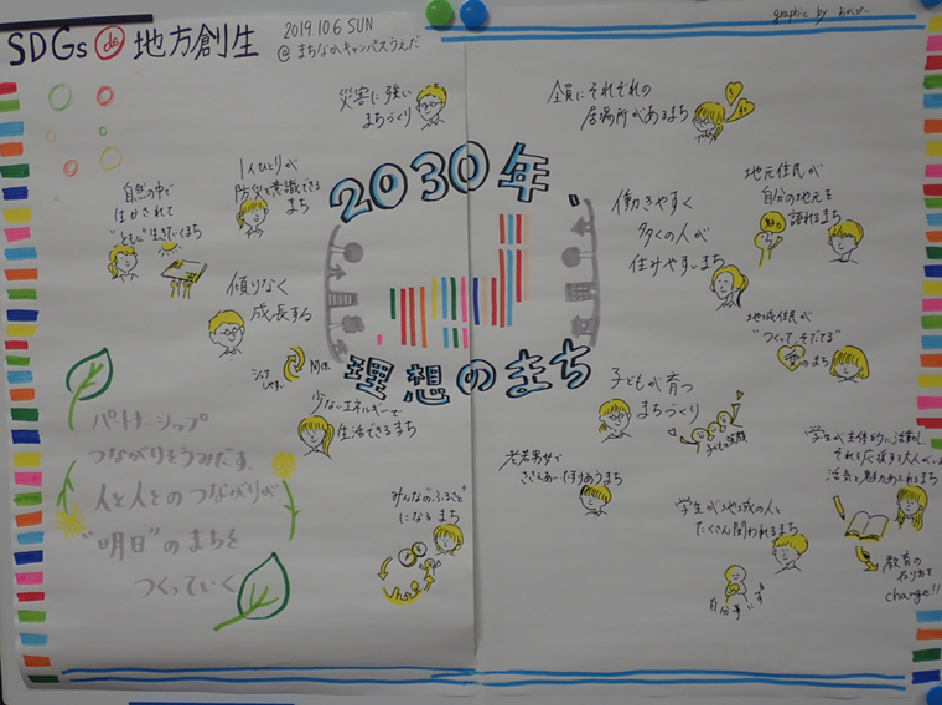 SDGs de 地方創生
2019.10.6 SUN
@ まちなかキャンパスうえだ
graphic by
災害に強い
まちづくり
全員にそれぞれの
居場所があるまち
1人ひとりが
防災を意識できる
まち
2030年、
理想のまち
自然の中で
生かされて
"ともに"生きていくまち
働きやすく
多くの人が
住みやすいまち
地元住民が
自分の地元を
語れるまち
魅力
偏りなく
成長する
地域住民が
"つくって、そだてる"
愛のまち
少ないエネルギーで
生活できるまち
子どもが育つ
まちづくり
子どもの笑顔
パートナーシップ
つながりをうみだす、
人と人とのつながりが
"明日"のまちを
つくっていく
みんなの"ふるさと"
になるまち
老若男女で
ささえあい、たすけあうまち
学生が地域の人と
たくさん関われるまち
自分事にする
学生が主体的に活動し、
それを応援する大人がいる
活気と魅力あふれるまち
教育の
在り方を
change!!